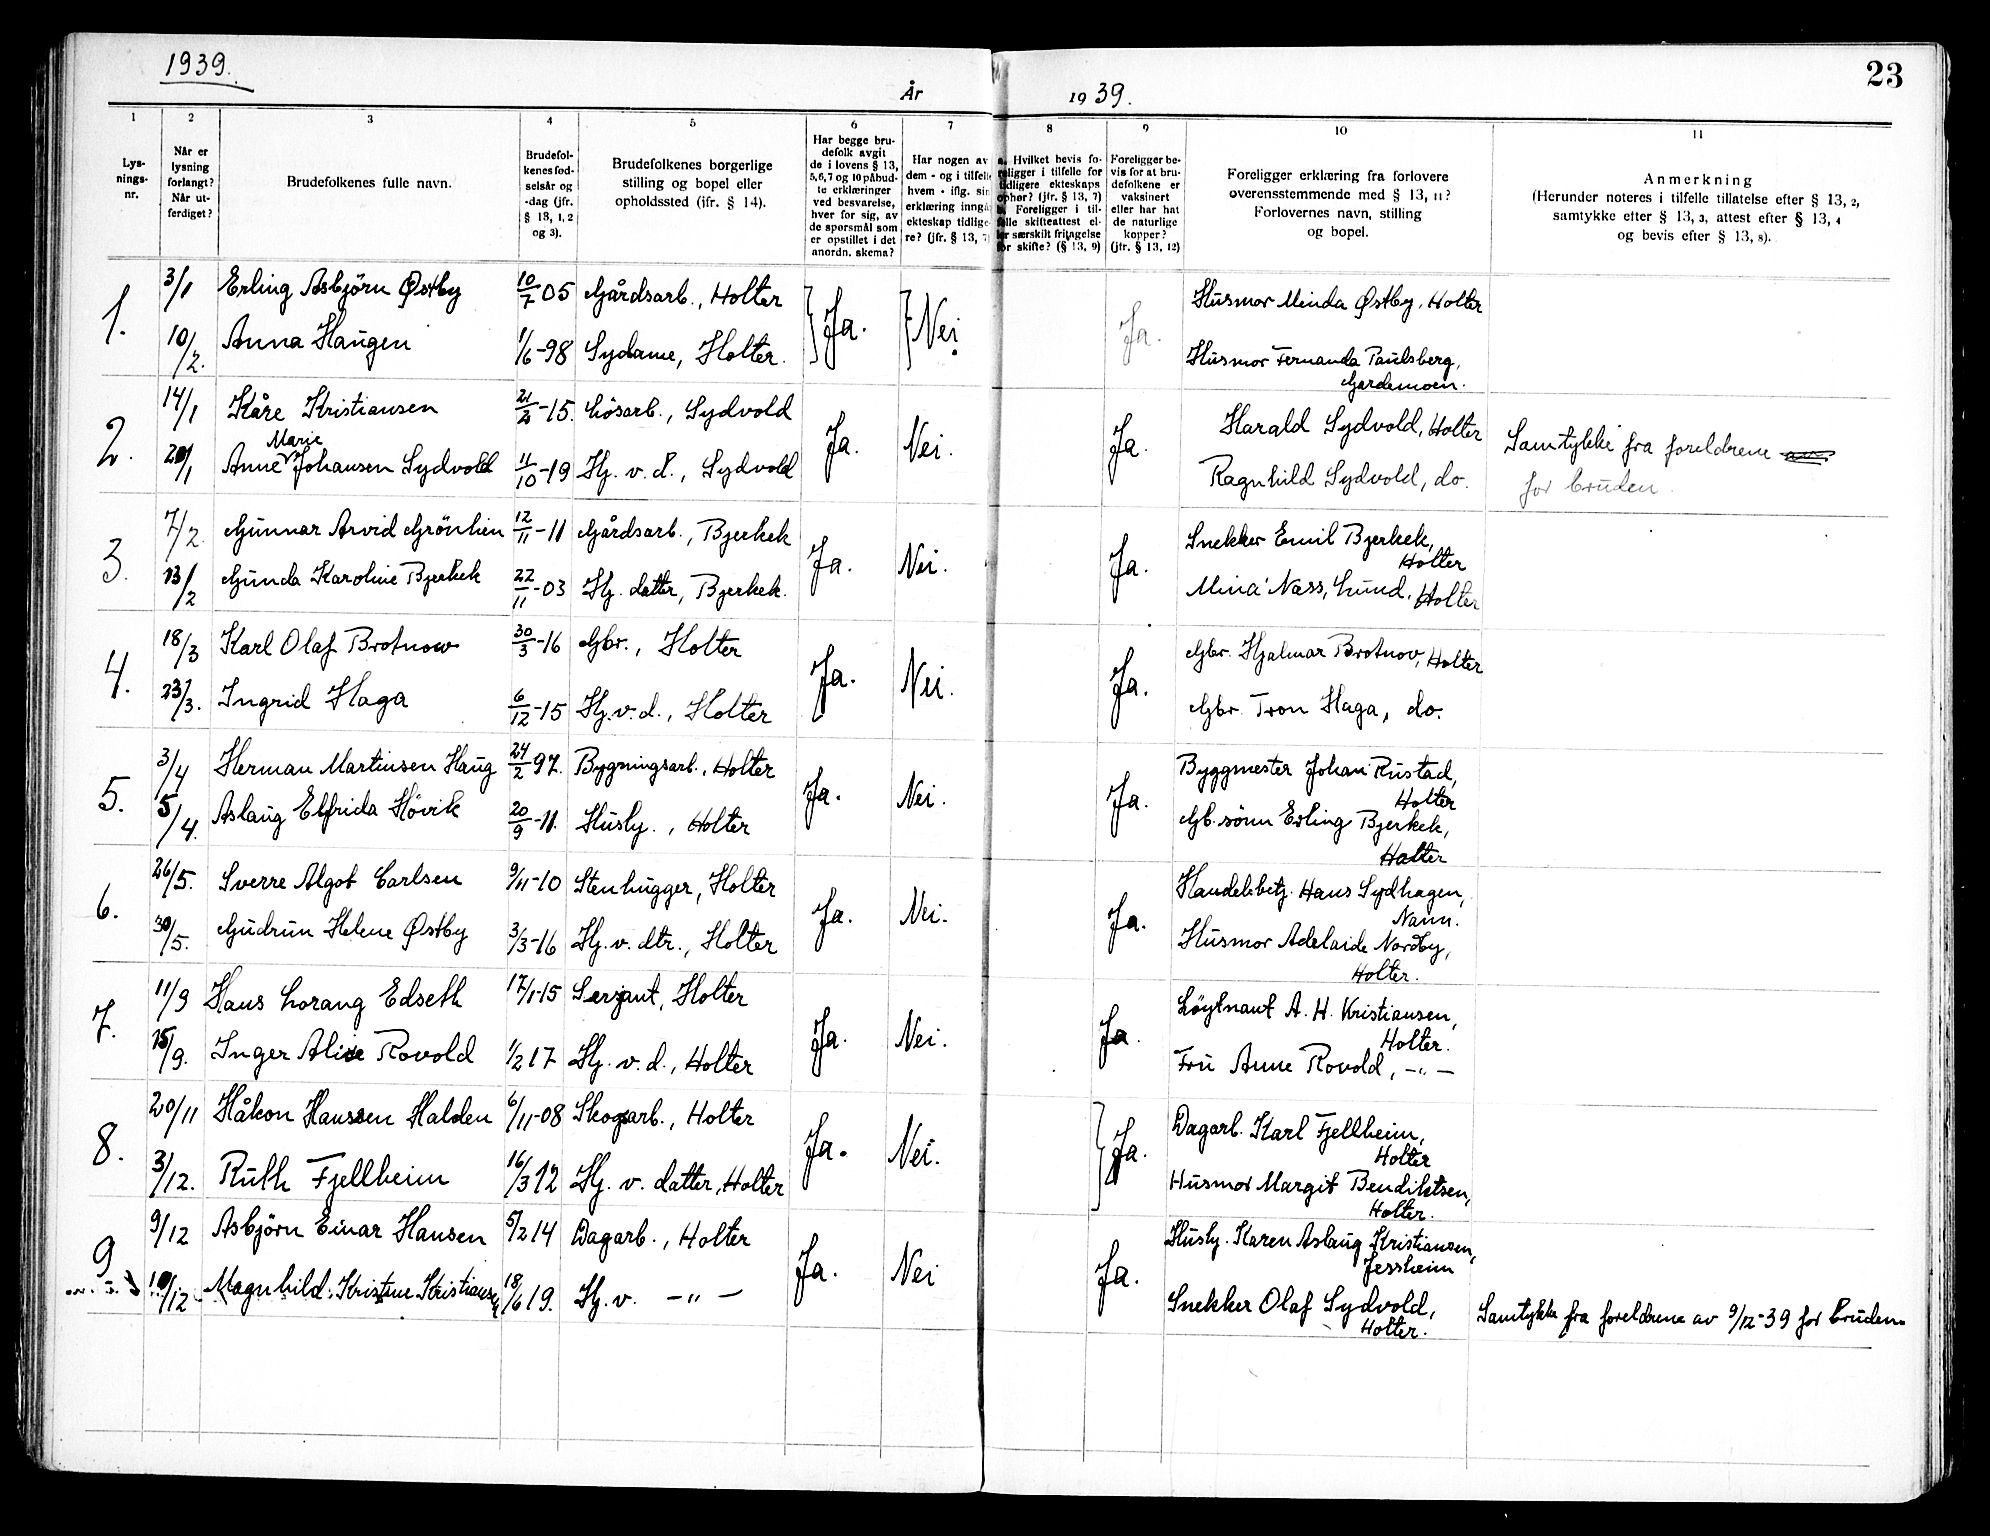 1939.
År
1939.
23
1
2
3
4
5
6
7
8
9
10
11
Lys-
nings-
nr.
Når er
lysning
forlangt?
Når ut-
ferdiget?
Brudefolkenes fulle navn.
Brudefol-
kenes fød-
selsår og
-dag (jfr.
§ 13, 1, 2
og 3).
Brudefolkenes borgerlige
stilling og bopel eller
opholdssted (jfr. § 14).
Har begge bru-
defolk avgit
de i lovens § 13,
5, 6, 7 og 10 påbud-
te erklæringer
ved besvarelse,
hver for sig, av
de spørsmål som
er opstillet i det
anordn. skema?
Har nogen av
dem - og i tilfelle
hvem - iflg. sin
erklæring inngå
ekteskap tidlige-
re? (jfr. § 13, 7)
a. Hvilket bevis fo-
religger i tilfelle for
tidligere ekteskaps
ophør? (jfr. § 13, 7)
b. Foreligger i til-
felle skifteattest el-
ler særskilt fritagelse
for skifte? (§ 13, 9)
Foreligger be-
vis for at bru-
defolkene er
vaksinert
eller har hat
de naturlige
kopper?
(jfr. § 13, 12)
Foreligger erklæring fra forlovere
overensstemmende med § 13, 11?
Forlovernes navn, stilling
og bopel.
Anmerkning
(Herunder noteres i tilfelle tillatelse efter § 13, 2,
samtykke efter § 13, 3, attest efter § 13, 4
og bevis efter § 13, 8).
1. 3/1 Erling Asbjörn Østby 10/7 05 Gårdsarb., Holter Ja. Nei Ja. Husmor Minda Østby, Holter
10/2. Anna Haugen 1/6-98 Sydame, Holter. Husmor Fernanda Paulsberg,
Gardemoen.
2. 14/1 Kåre Kristiansen 21/2-15. Lösarb., Sydvold Ja. Nei. Ja. Harald Sydvold, Holter Samtykke fra foreldrene
Marie
20/1 Anne Johansen Sydvold 11/10-19 Hj. v. d., Sydvold Ragnhild Sydvold, do. for bruden.
3. 7/2. Gunnar Arvid Grönlien 12/11-11 Gårdsarb., Bjerkek Ja. Nei. Ja. Snekker Emil Bjerkek,
Holter
13/2 Gunda Karoline Bjerkek 22/11-03 Hj. datter, Bjerkek. Mina Næss, Lund, Holter
4. 18/3 Karl Olaf Brotnow 30/3-16 Gbr., Holter Ja. Nei. Ja. Gbr. Hjalmar Brotnov, Holter
23/3. Ingrid Haga 6/12-15 Hj. v. d., Holter Gbr. Tron Haga, do.
5. 3/4 Herman Martinsen Haug 24/2 97. Bygningsarb., Holter Ja. Nei. Ja. Byggmester Johan Rustad,
Holter
5/4. Aslaug Elfrida Hövik 20/9-11. Hush., Holter Gb. sönn Erling Bjerkek,
Holter
6. 26/5. Sverre Algot Carlsen 9/11-10 Stenhugger, Holter Ja. Nei. Ja. Handelsbetj. Hans Sydhagen,
Nann.
30/5. Gudrun Helene Østby 3/3-16 Hj. v. dtr., Holter Husmor Adelaide Nordby,
Holter.
7. 11/9 Hans Lorang Edseth 17/1-15 Serjant, Holter Ja. Nei. Ja. Löytnant A. H. Kristiansen,
Holter.
15/9. Inger Alise Rovold 1/2 17 Hj. v. d., Holter Fru Anne Rovold, -"-
8. 20/11 Håkon Hanssen Halden 6/11-08 Skogsarb., Holter Ja. Nei. Ja. Dagarb. Karl Fjellheim,
Holter
3/12. Ruth Fjellheim 16/3 12 Hj. v. datter, Holter Husmor Margit Bendiktsen,
Holter.
9 9/12 Asbjörn Einar Hansen 5/2 14 Dagarb., Holter Ja. Nei Ja. Hush. Karen Aslaug Kristiansen,
Jessheim
10/12 Magnhild Kristine Kristiansen 18/6 19. Hj. v. -"- Snekker Olaf Sydvold,
Holter. Samtykke fra foreldrene av 9/12-39 for bruden.